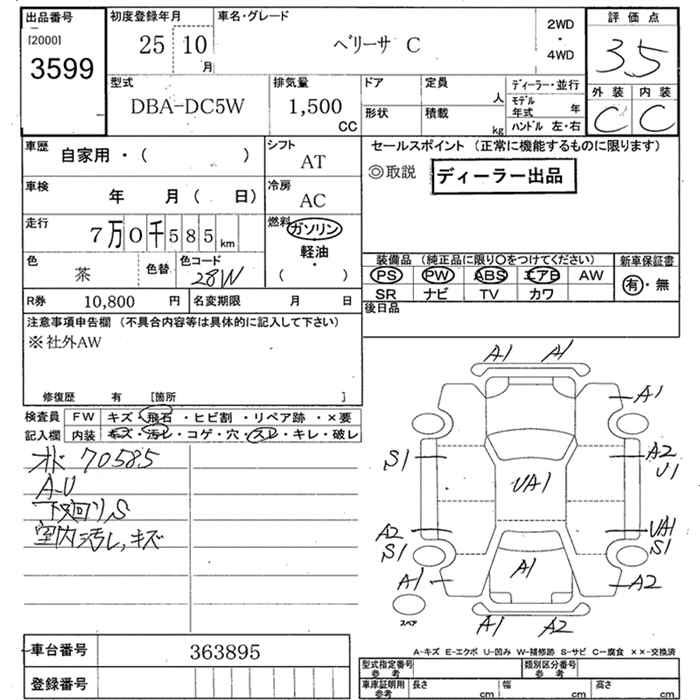 出品番号
[2000]
3599
初度登録年月
25 10
月
車名・グレード
ベリーサ C
2WD
・
4WD
評価点
3.5
外装 内装
C C
型式
DBA-DC5W
排気量
1,500
CC
ドア
形状
定員
人
積載
kg
ディーラー・並行
モデル年式 年
ハンドル 左・右
車歴
自家用・( )
シフト
AT
車検
年 月( 日)
冷房
AC
走行
7万0千585km
燃料
ガソリン
軽油
・
( )
色
茶
色替
色コード
28W
R券 10,800 円
名変期限 月 日
セールスポイント (正常に機能するものに限ります)
◎取説 ディーラー出品
装備品 (純正品に限り○をつけてください)
PS PW ABS エアB AW
SR ナビ TV カワ
新車保証書
有・無
後日品
注意事項申告欄 (不具合内容等は具体的に記入して下さい)
※社外AW
修復歴 有 [箇所 ]
検査員記入欄
FW キズ・飛石・ヒビ割・リペア跡・×要
内装 キズ・汚レ・コゲ・穴・スレ・キレ・破レ
オド 70585
A-U
下廻りS
室内汚レ,キズ
A1 A1
A1
S1
A2
U1
UA1
A2
S1
UA1
S1
A1
A1
A2
スペア
A1 A2
A-キズ E-エクボ U-凹み W-補修跡 S-サビ C-腐食 ××-交換済
車台番号 363895
登録番号
型式指定番号
参考
類別区分番号
参考
車庫証明用
参考
長さ cm
幅 cm
高さ cm